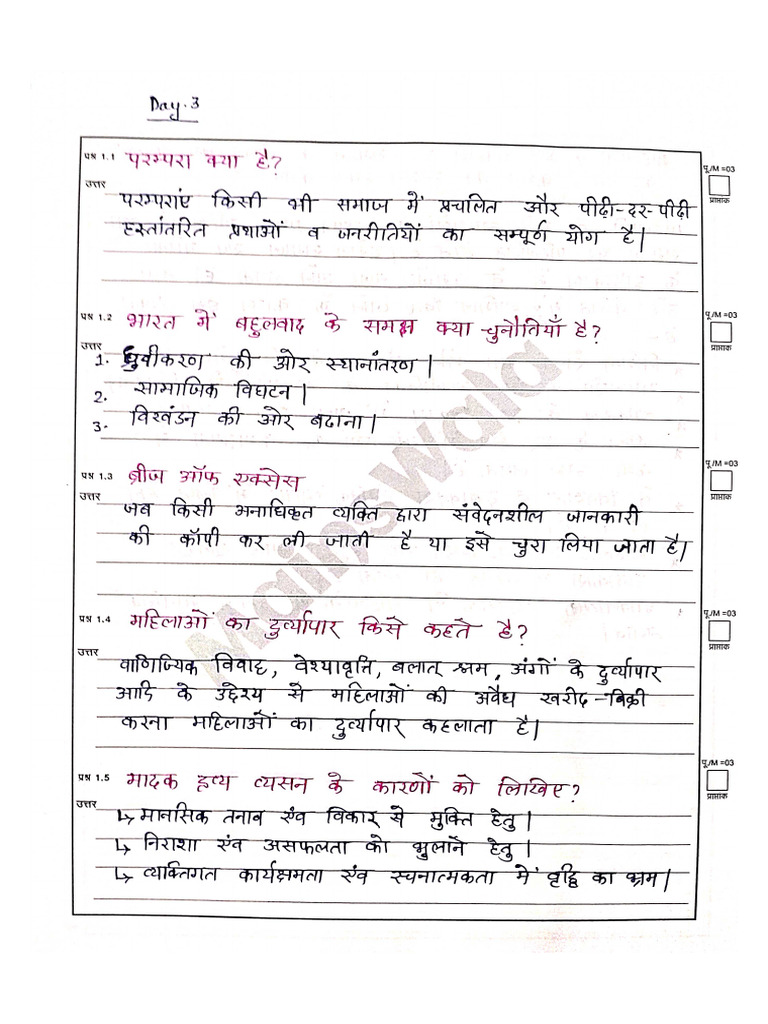 Day.3
प्रश्न 1.1 परम्परा क्या है?
पू./M =03
उत्तर
प्राप्तांक
परम्पराएं किसी भी समाज में प्रचलित और पीढ़ी-दर-पीढ़ी
हस्तांतरित प्रथाओं व जनरीतियों का सम्पूर्ण योग है।
प्रश्न 1.2 भारत में बहुलवाद के समक्ष क्या चुनौतियाँ है?
पू./M =03
उत्तर
प्राप्तांक
1. ध्रुवीकरण की ओर स्थानांतरण।
2. सामाजिक विघटन।
3. विखंडन की ओर बढाना।
प्रश्न 1.3 ब्रीज ऑफ एक्सेस
पू./M =03
उत्तर
प्राप्तांक
जब किसी अनाधिकृत व्यक्ति द्वारा संवेदनशील जानकारी
की कॉपी कर ली जाती है या इसे चुरा लिया जाता है।
प्रश्न 1.4 महिलाओं का दुर्व्यापार किसे कहते है?
पू./M =03
उत्तर
प्राप्तांक
वाणिज्यिक विवाह, वेश्यावृत्ति, बलात् श्रम, अंगों के दुर्व्यापार
आदि के उद्देश्य से महिलाओं की अवैध खरीद-बिक्री
करना महिलाओं का दुर्व्यापार कहलाता है।
प्रश्न 1.5 मादक द्रव्य व्यसन के कारणों को लिखिए?
पू./M =03
उत्तर
प्राप्तांक
↳ मानसिक तनाव एंव विकार से मुक्ति हेतु।
↳ निराशा एंव असफलता को भुलाने हेतु।
↳ व्यक्तिगत कार्यक्षमता एंव रचनात्मकता में वृद्धि का भ्रम।
Mainswala